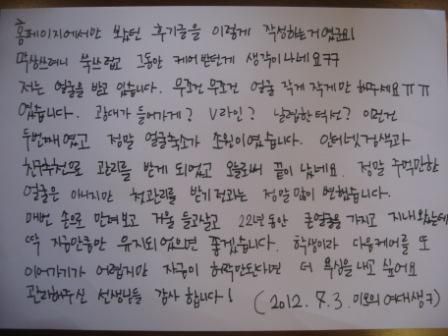 홈페이지에서만 봤던 후기글을 이렇게 작성하는거였군요!
막상쓰려니 쑥쓰럽고 그동안 케어받던게 생각이나네요ㅋㅋ
저는 얼굴을 받고 있습니다. 무조건 무조건 얼굴 작게 작게만 해주세요ㅠㅠ
였습니다. 광대가 들어가게? V라인? 날렵한턱선? 이런건
두번째였고 정말 얼굴축소가 소원이였습니다. 인터넷검색과
친구추천으로 관리를 받게 되었고 오늘로써 끝이 났네요. 정말 주먹만한
얼굴은 아니지만 첫관리를 받기전과는 정말 많이 변했습니다.
매번 손으로 만져보고 거울 들고살고 22년동안 큰얼굴을 가지고 지내왔는데
딱 지금만큼만 유지되었으면 좋겠습니다. 학생이라 다음케어를 또
이어가기가 어렵지만 자금이 허락만된다면 더 욕심을 내고 싶어요
관리해주신 선생님들 감사 합니다!
(2012. 7. 3. 미모의 여대생ㅋ)